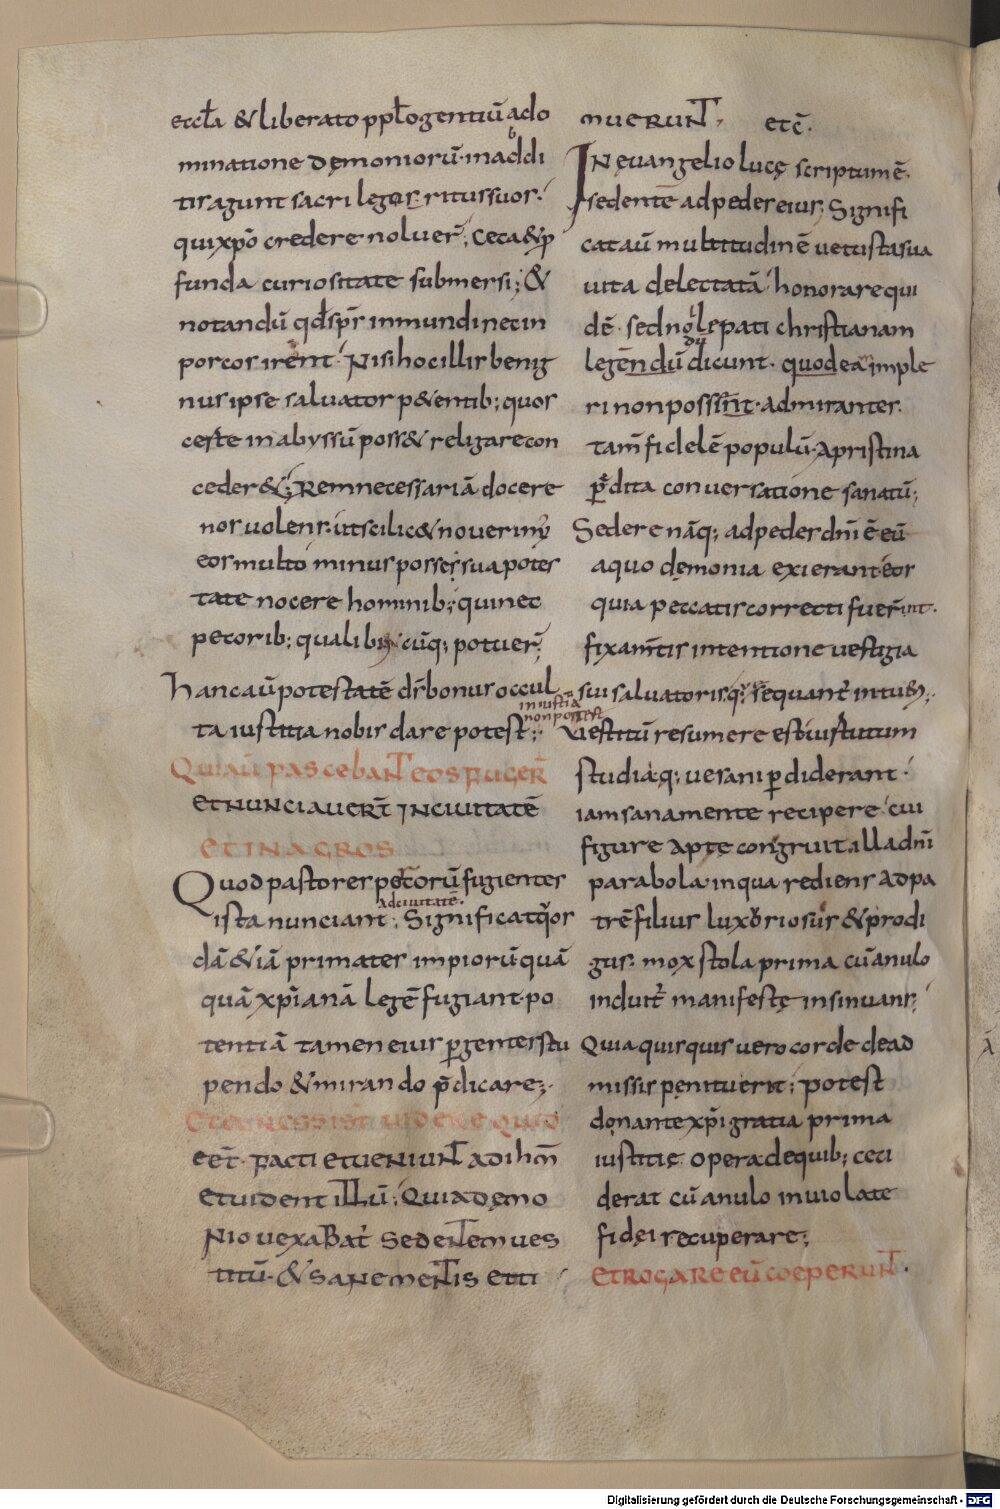 eccła & liberato pp̄lo gentiū ado
minatione demoniorū · in abddi
tis agunt sacrilegos ritus suos ·
qui xp̄o credere noluer̄ ; ceca & p̱
funda curiositate submersi ; &
notandū qd̄ sp̄s inmundi nec in
porcos irent · Nisi hoc illis benig
nus ipse salvator p&entib; quos
certe in abyssū poss& religare con
ceder& ; Rem necessariā docere
nos volens · ut scilic& noverim᷒
eos multo minus posse sua potes
tate nocere hominib; qui nec
pecorib; qualibus cūq; potuer̄ ;
Hanc aū potestatē d̄s bonus occul
ta iustitia nobis dare potest ;
iniustā
non potest
Qui aū pascebant eos fuger̄
et nunciaver̄t in civitatē
et in agros
Quod pastores pecorū fugientes
ad civitatē ·
ista nunciant · Significat quos
dā &iā primates impiorū quā
quā xp̄ianā legē fugiant · po
tentiā tamen eius p̱ gentes stu
pendo & mirando p̄dicare ;
eēt · facti et veniunt ad ih̄m
et vident illū ; Qui a demo
nio vexabat᷒ sedentem ves
titū · & sane mentis etti
muerunt , etc̄ ·
In evangelio luce scriptum ē ·
sedentē ad pedes eius ; Signifi
cat aū multitudinē vetusta sua
vita delectatā honorare qui
dē · sed nolle pati christianam
legē
dū dicunt · quod eam imple
ri non possint · admirantes
tam̄ fidelē populū · a pristina
p̱dita conversatione sanatū ;
Sedere nāq; ad pedes dn̄i ē eū
a quo demonia exierant · eos
quia peccatis correcti fuerint ·
fixa m̄tis intentione vestigia
sui salvatoris q; sequant᷒ intuēs
Vestitū resumere est iustitutum
studiaq; vera ni p̱diderant ·
iam sana mente recipere · cui
figure apte congruit illa dn̄i
parabola · in qua rediens ad pa
trē filius luxoriosus & prodi
gus · mox stola prima cū anulo
induit᷒ manifeste insinuans ;
Quia quisquis vero corde de ad
missis penituerit ; potest
donante xp̄i gratia prima
iustitie opera de quib; ceci
derat cū anulo inviolate
fidei recuperare ;
Et rogare eū coeperunt ·
Digitalisierung gefördert durch die Deutsche Forschungsgemeinschaft - DFG